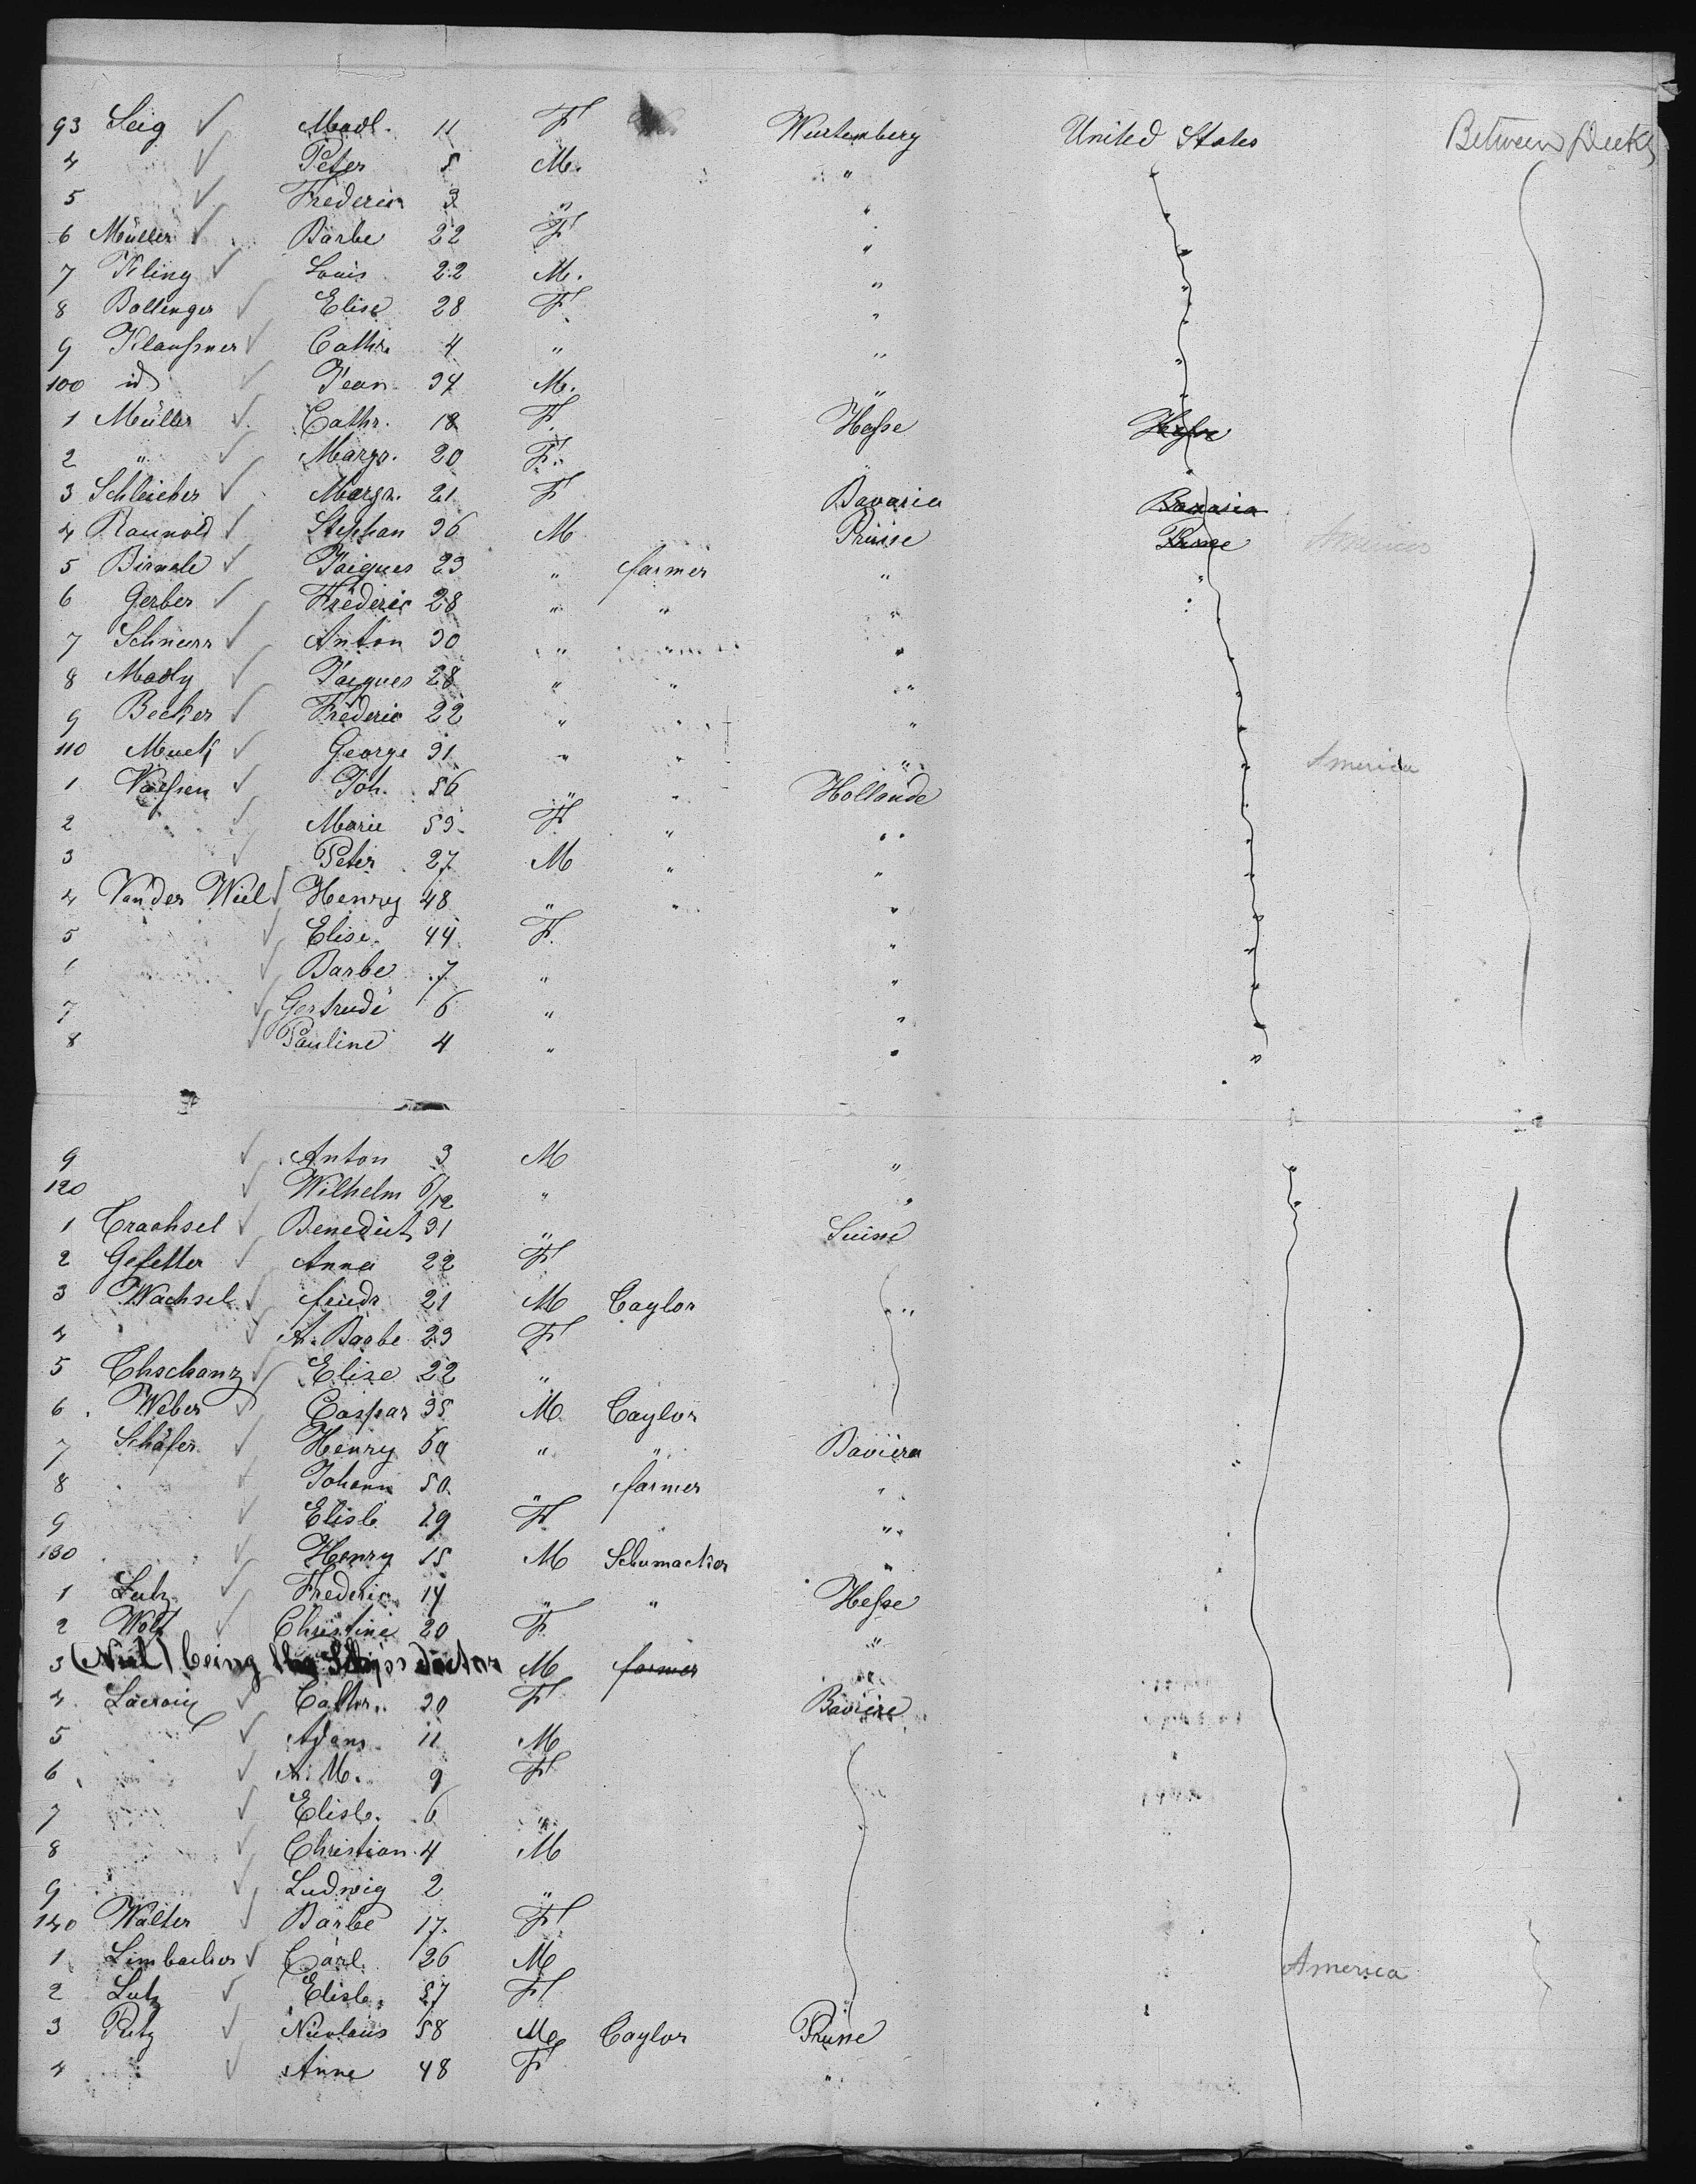 93 Seig ✓ Madl. 11 F Wurtemberg United States Between Decks
4 ✓ Peter 5 M. "
5 ✓ Frederic 3 " "
6 Müller ✓ Barbe 22 F "
7 Kling ✓ Louis 22 M. "
8 Bollinger ✓ Elise 28 F "
9 Klaußner ✓ Cathr. 4 " "
100 id ✓ Jean 34 M. "
1 Müller ✓ Cathr. 18 F. Heſse Heſse
2 " ✓ Margr. 20 F. "
3 Schleicher ✓ Margr. 21 F Bavaria Bavaria
4 Raunold ✓ Stephan 36 M Prusse Prusse America
5 Birnele ✓ Jaiques 23 " farmer " "
6 Gerber ✓ Fréderic 28 " " "
7 Schnurr ✓ Anton 30 " " "
8 Madly ✓ Jaiques 28 " " "
9 Becker ✓ Fréderic 22 " " "
110 Muck ✓ George 31 " " " America
1 Vaeſsen ✓ Joh. 56 " " Hollande
2 ✓ Marie 53 F " "
3 ✓ Peter 27 M " "
4 Van der Wiel ✓ Henry 48 " " "
5 ✓ Elise 44 F. "
6 ✓ Barbe 7 " "
7 ✓ Gertrude 6 " "
8 ✓ Pauline 4 " "
9 ✓ Anton 3 M "
120 ✓ Wilhelm 6/12 " "
1 Trachsel ✓ Benedict 31 " Suisse
2 Gefeller ✓ Anna 22 F
3 Wachsel ✓ friedr 21 M Taylor "
4 ✓ A. Barbe 23 F
5 Thschanz ✓ Elise 22 "
6 Weber ✓ Caspar 35 M Taylor
7 Schäfer ✓ Henry " " Baviera
8 ✓ Johann 50 " farmer "
9 ✓ Elisb. 19 F "
130 ✓ Henry 15 M Schumacker "
1 Lutz ✓ Frederic 14 " " Heſse
2 Wolf ✓ Christine 20 F "
3 (Niel) being the Ships doctor M farmer "
4 Lacroix ✓ Cathr. 30 F Baviere
5 ✓ Adam 11 M
6 ✓ A. M. 9 F
7 ✓ Elisb. 6 "
8 ✓ Christian 4 M
9 ✓ Ludwig 2 "
140 Walter ✓ Barbe 17 F
1 Limbacher ✓ Carl 26 M America
2 Lutz ✓ Elisb. 57 F
3 Putz ✓ Nicolaus 58 M Taylor Prusse
4 ✓ Anne 48 F "